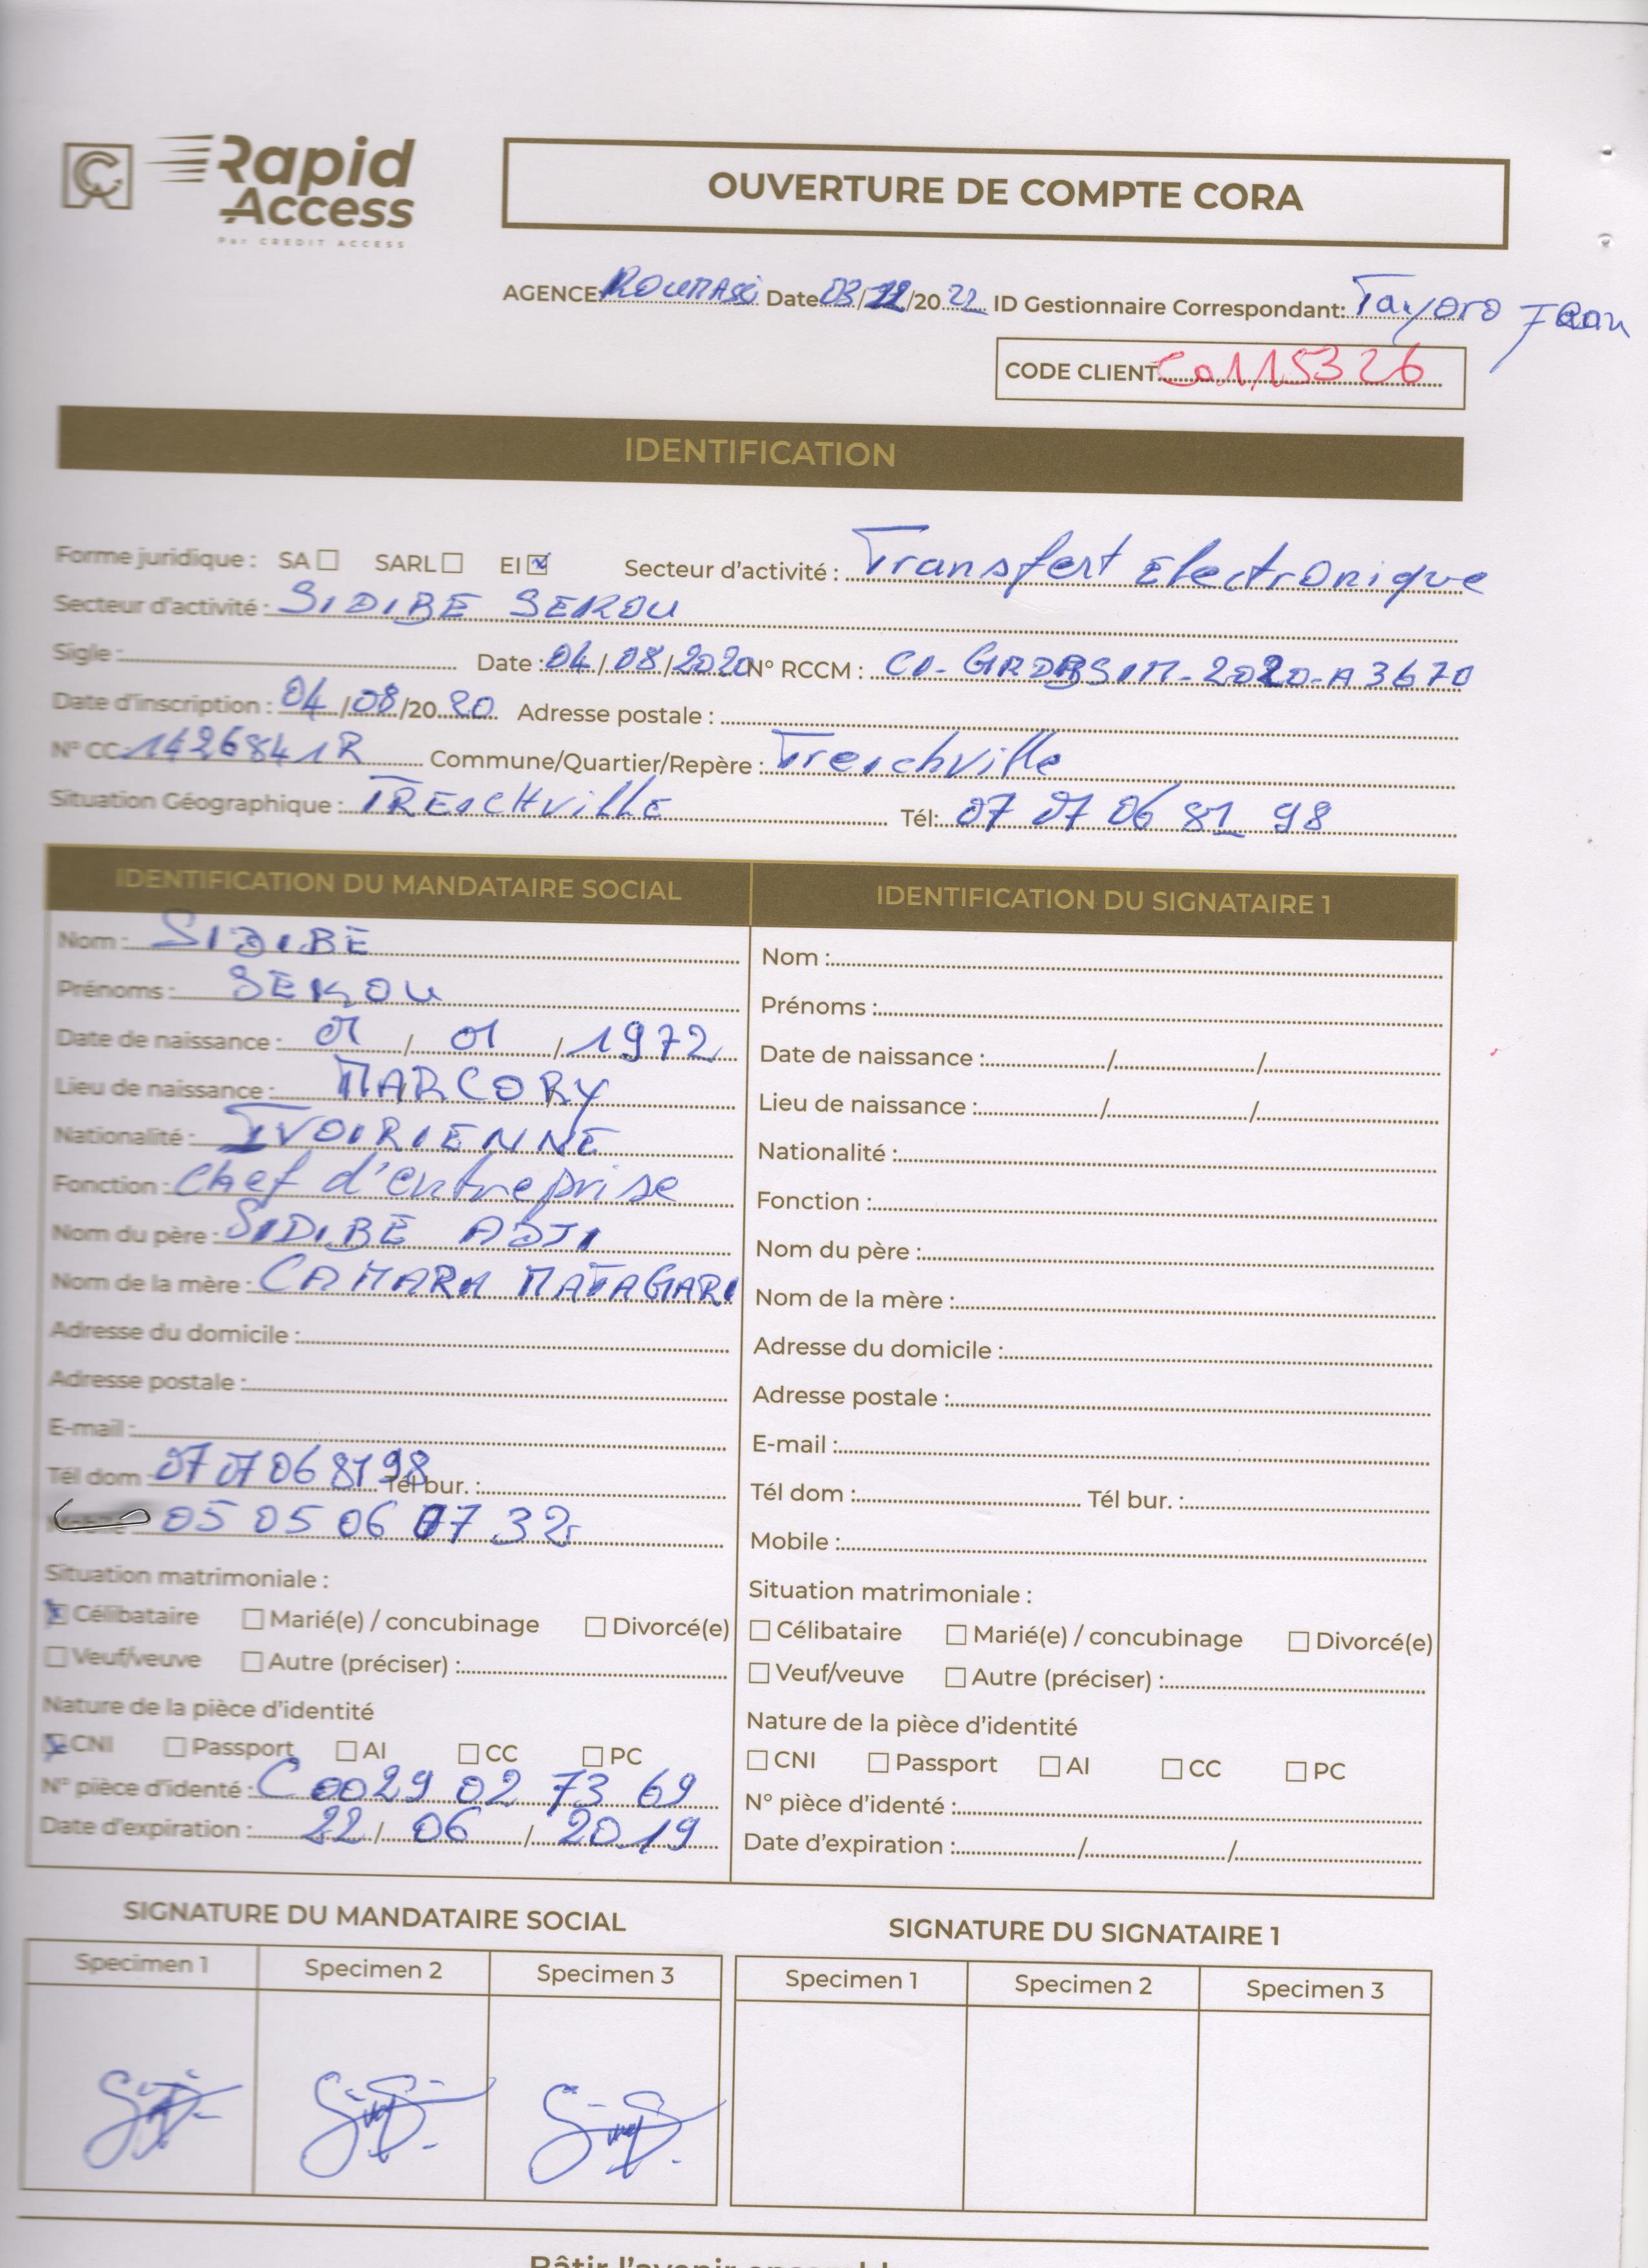 Rapid
Access
Par CREDIT ACCESS
OUVERTURE DE COMPTE CORA
AGENCE: Date 03/12/2022 ID Gestionnaire Correspondant: Tayoro Jean
CODE CLIENT Co115326
IDENTIFICATION
Forme juridique : SA SARL EI Secteur d'activité : Transfert Electronique
Secteur d'activité : SIDIBE SEKOU
Sigle : Date : 04/08/2020 N° RCCM : CI-GRDBSIM-2020-A3670
Date d'inscription : 04/08/2020 Adresse postale :
N° CC 1426841R Commune/Quartier/Repère : Treichville
Situation Géographique : TREICHVILLE Tél: 07 07 06 81 98
IDENTIFICATION DU MANDATAIRE SOCIAL
Nom : SIDIBE
Prénoms : SEKOU
Date de naissance : 01 / 01 / 1972
Lieu de naissance : MARCORY
Nationalité : IVOIRIENNE
Fonction : Chef d'entreprise
Nom du père : SIDIBE ADJI
Nom de la mère : CAMARA MATAGARI
Adresse du domicile :
Adresse postale :
E-mail :
Tél dom : 07 07 06 81 98 Tél bur. :
05 05 06 07 32
Situation matrimoniale :
Célibataire Marié(e) / concubinage Divorcé(e)
Veuf/veuve Autre (préciser) :
Nature de la pièce d'identité
CNI Passport AI CC PC
N° pièce d'identé : C 0029 02 73 69
Date d'expiration : 22 / 06 / 2019
IDENTIFICATION DU SIGNATAIRE 1
Nom :
Prénoms :
Date de naissance : / /
Lieu de naissance : / /
Nationalité :
Fonction :
Nom du père :
Nom de la mère :
Adresse du domicile :
Adresse postale :
E-mail :
Tél dom : Tél bur. :
Mobile :
Situation matrimoniale :
Célibataire Marié(e) / concubinage Divorcé(e)
Veuf/veuve Autre (préciser) :
Nature de la pièce d'identité
CNI Passport AI CC PC
N° pièce d'identé :
Date d'expiration : / /
SIGNATURE DU MANDATAIRE SOCIAL
Specimen 1 Specimen 2 Specimen 3
SIGNATURE DU SIGNATAIRE 1
Specimen 1 Specimen 2 Specimen 3
Bâtir l'avenir